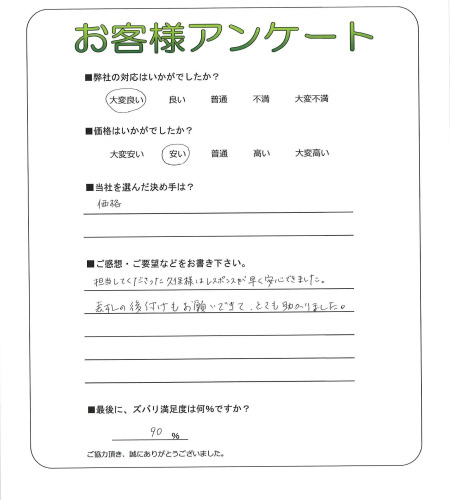 お客様アンケート
■弊社の対応はいかがでしたか？
大変良い 良い 普通 不満 大変不満
■価格はいかがでしたか？
大変安い 安い 普通 高い 大変高い
■当社を選んだ決め手は？
価格
■ご感想・ご要望などをお書き下さい。
担当してくださった久保様はレスポンスが早く安心できました。
表札の後付けもお願いできて、とても助かりました。
■最後に、ズバリ満足度は何%ですか？
90 %
ご協力頂き、誠にありがとうございました。